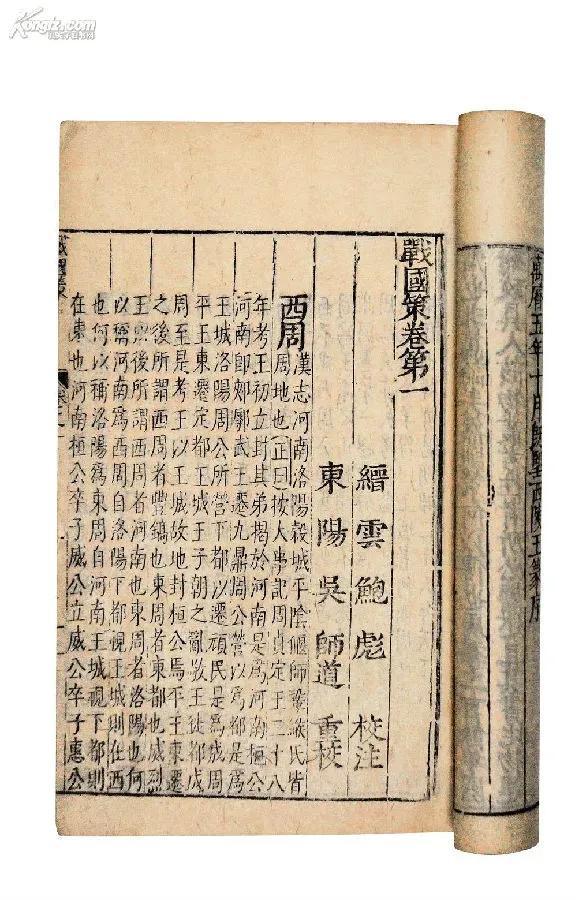 萬曆五年十月既望西陵王篆序
戰國策卷第一
縉雲鮑彪校注
東陽吳師道重校
西周漢志河南洛陽穀城平陰偃師鞏緱氏皆
周地也正曰按大事記周貞定王二十八
年考王初立封其弟揭於河南是爲河南桓公
河南即郟鄏武王遷九鼎周公營以爲都是爲
王城洛陽周公所營下都以遷頑民是爲成周
平王東遷定都王城王子朝之亂敬王徙都成
周至是考王以王城故地封桓公焉平王東遷
之後所謂西周者豐鎬也東周者東都也威烈
王以後所謂西周者河南也東周者洛陽也何
以稱河南爲西周自洛陽下都視王城則在西
也何以稱洛陽爲東周自河南王城視下都則
在東也河南桓公卒子威公立威公卒子惠公
戰國策
Kongfz.com